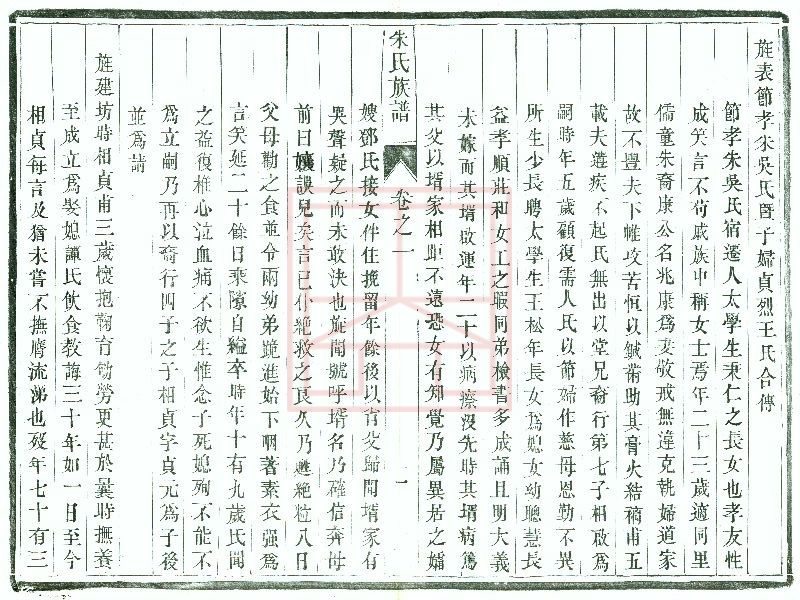 旌表節孝朱吳氏暨子婦貞烈王氏合傳
節孝朱吳氏宿遷人太學生秉仁之長女也孝友性
成笑言不苟戚族中稱女士焉年二十三歲適同里
儒童朱裔康公名兆康爲妻敬戒無違克執婦道家
故不豐夫下帷攻苦恆以鍼黹助其膏火結褵甫五
載夫遘疾不起氏無出以堂兄裔行第七子相啟爲
嗣時年五歲顧復需人氏以節婦作慈母恩勤不異
所生少長聘太學生王松年長女爲媳女幼聰慧長
益孝順莊和女工之暇同弟檢書多成誦且明大義
未嫁而其壻啟運年二十以病瘵沒先時其壻病篤
其父以壻家相距不遠恐女有知覺乃屬異居之孀
朱氏族譜
卷之一
一
嫂鄧氏接女伴住挽留年餘後以省父歸聞壻家有
哭聲疑之而未敢決也旋聞號呼壻名乃確信奔母
前曰孃誤兒矣言已仆絶救之良久乃甦絶粒八日
父母勸之食並令兩幼弟跪進始下咽著素衣强爲
言笑延二十餘日乘隙自縊卒時年十有九歲氏聞
之益復椎心泣血痛不欲生惟念子死媳殉不能不
爲立嗣乃再以裔行四子之子相貞字貞元爲子後
並爲請
旌建坊時相貞甫三歲懷抱鞠育劬勞更甚於曩時撫養
至成立爲娶媳譙氏飲食教誨三十年如一日至今
相貞每言及猶未嘗不撫膺流涕也歿年七十有三